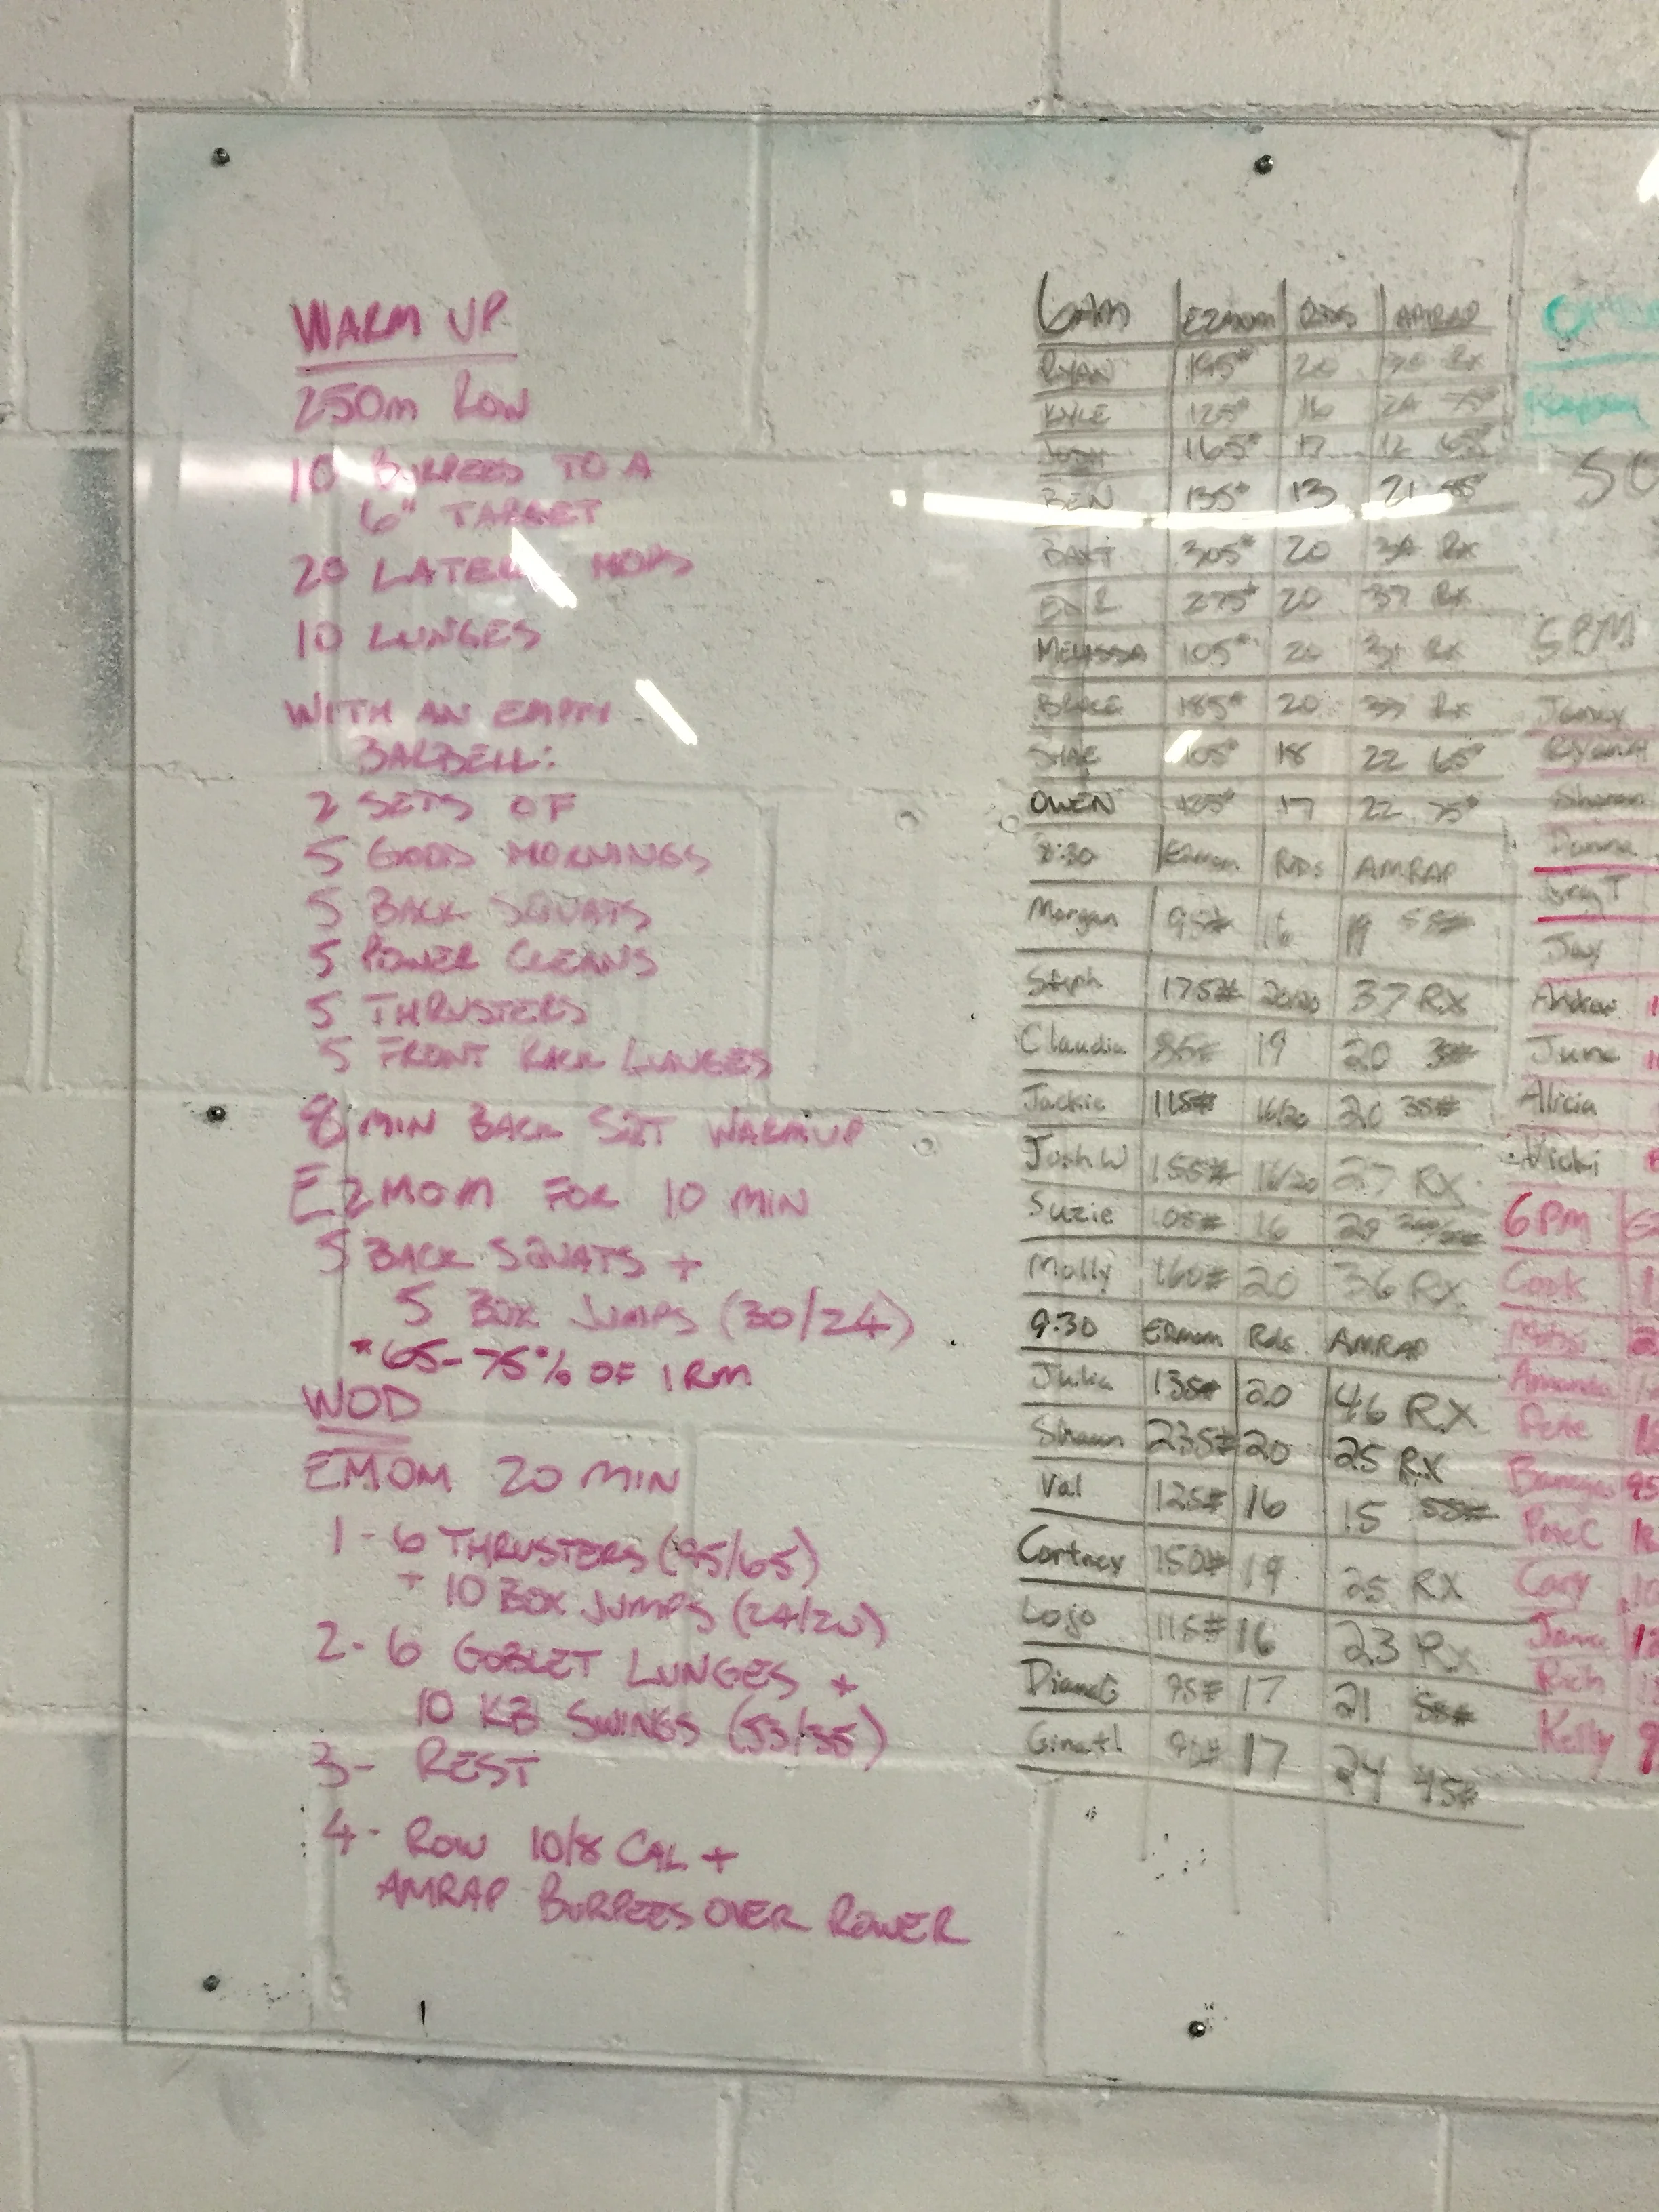 WARM UP
250m ROW
10 BURPEES TO A
6" TARGET
20 LATERAL HOPS
10 LUNGES
WITH AN EMPTY
BARBELL:
2 SETS OF
5 GOOD MORNINGS
5 BACK SQUATS
5 POWER CLEANS
5 THRUSTERS
5 FRONT RACK LUNGES
8 MIN BACK SQT WARMUP
E2MOM FOR 10 MIN
5 BACK SQUATS +
5 BOX JUMPS (30/24)
*65-75% OF 1RM
WOD
EMOM 20 MIN
1-6 THRUSTERS (95/65)
+ 10 BOX JUMPS (24/20)
2-6 GOBLET LUNGES +
10 KB SWINGS (53/35)
3- REST
4- ROW 10/8 CAL +
AMRAP BURPEES OVER ROWER
6AM E2MOM RDS AMRAP
RYAN 195# 20 Rx
KYLE 125# 16 24 75#
JOSH 165# 17 12 65#
BEN 135# 13 21
BAXT 305# 20 Rx
275# 20 37 Rx
MELISSA 105# 20 31 Rx
185# 20 Rx
SHAE 105# 18 22 65#
OWEN 17 22 75#
8:30 E2mom RDs AMRAP
Morgan 95# 16 19 55#
Steph 175# 20/20 37 RX
Claudia 19 20
Jackie 115# 16/20 35#
Josh W 155# 16/20 27 RX
Suzie 105# 16
Molly 160# 20 36 RX
9:30 E2mom Rds AMRAP
Julia 135# 20 46 RX
Shaun 235# 20 25 RX
Val 125# 16 15 55#
Cortney 150# 19 25 RX
Lojo 115# 16 23 Rx
DianeG 95# 17 21 55#
17 24 45#
5PM
Ryan H
Sharon
Donna
Jay
Andrew
June
Alicia
Vicki
6PM
Cook
Amanda
Pete
Pete C
Cary
Rich
Kelly